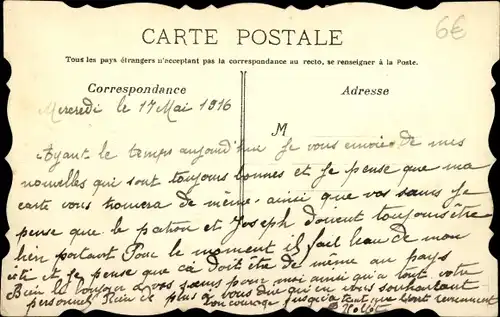 6€
CARTE POSTALE
Tous les pays étrangers n'acceptent pas la correspondance au recto, se renseigner à la Poste.
Correspondance
Adresse
Mercredi le 17 Mai 1916
M
Ayant le temps aujourd'hui Je vous envoie de mes
nouvelles qui sont toujours bonnes et Je pense que ma
carte vous trouvera de même ainsi que vos sœurs Je
pense que le patron et Joseph doivent toujours être
bien portant Pour le moment il fait beau de mon
côté et Je pense que ça doit être de même au pays
Bien le bonjour a vos sœurs pour moi ainsi qu'a tout votre
personnel Rien de plus a vous dire qu'en vous souhaitant
bon courage jusqu'a tant que tout